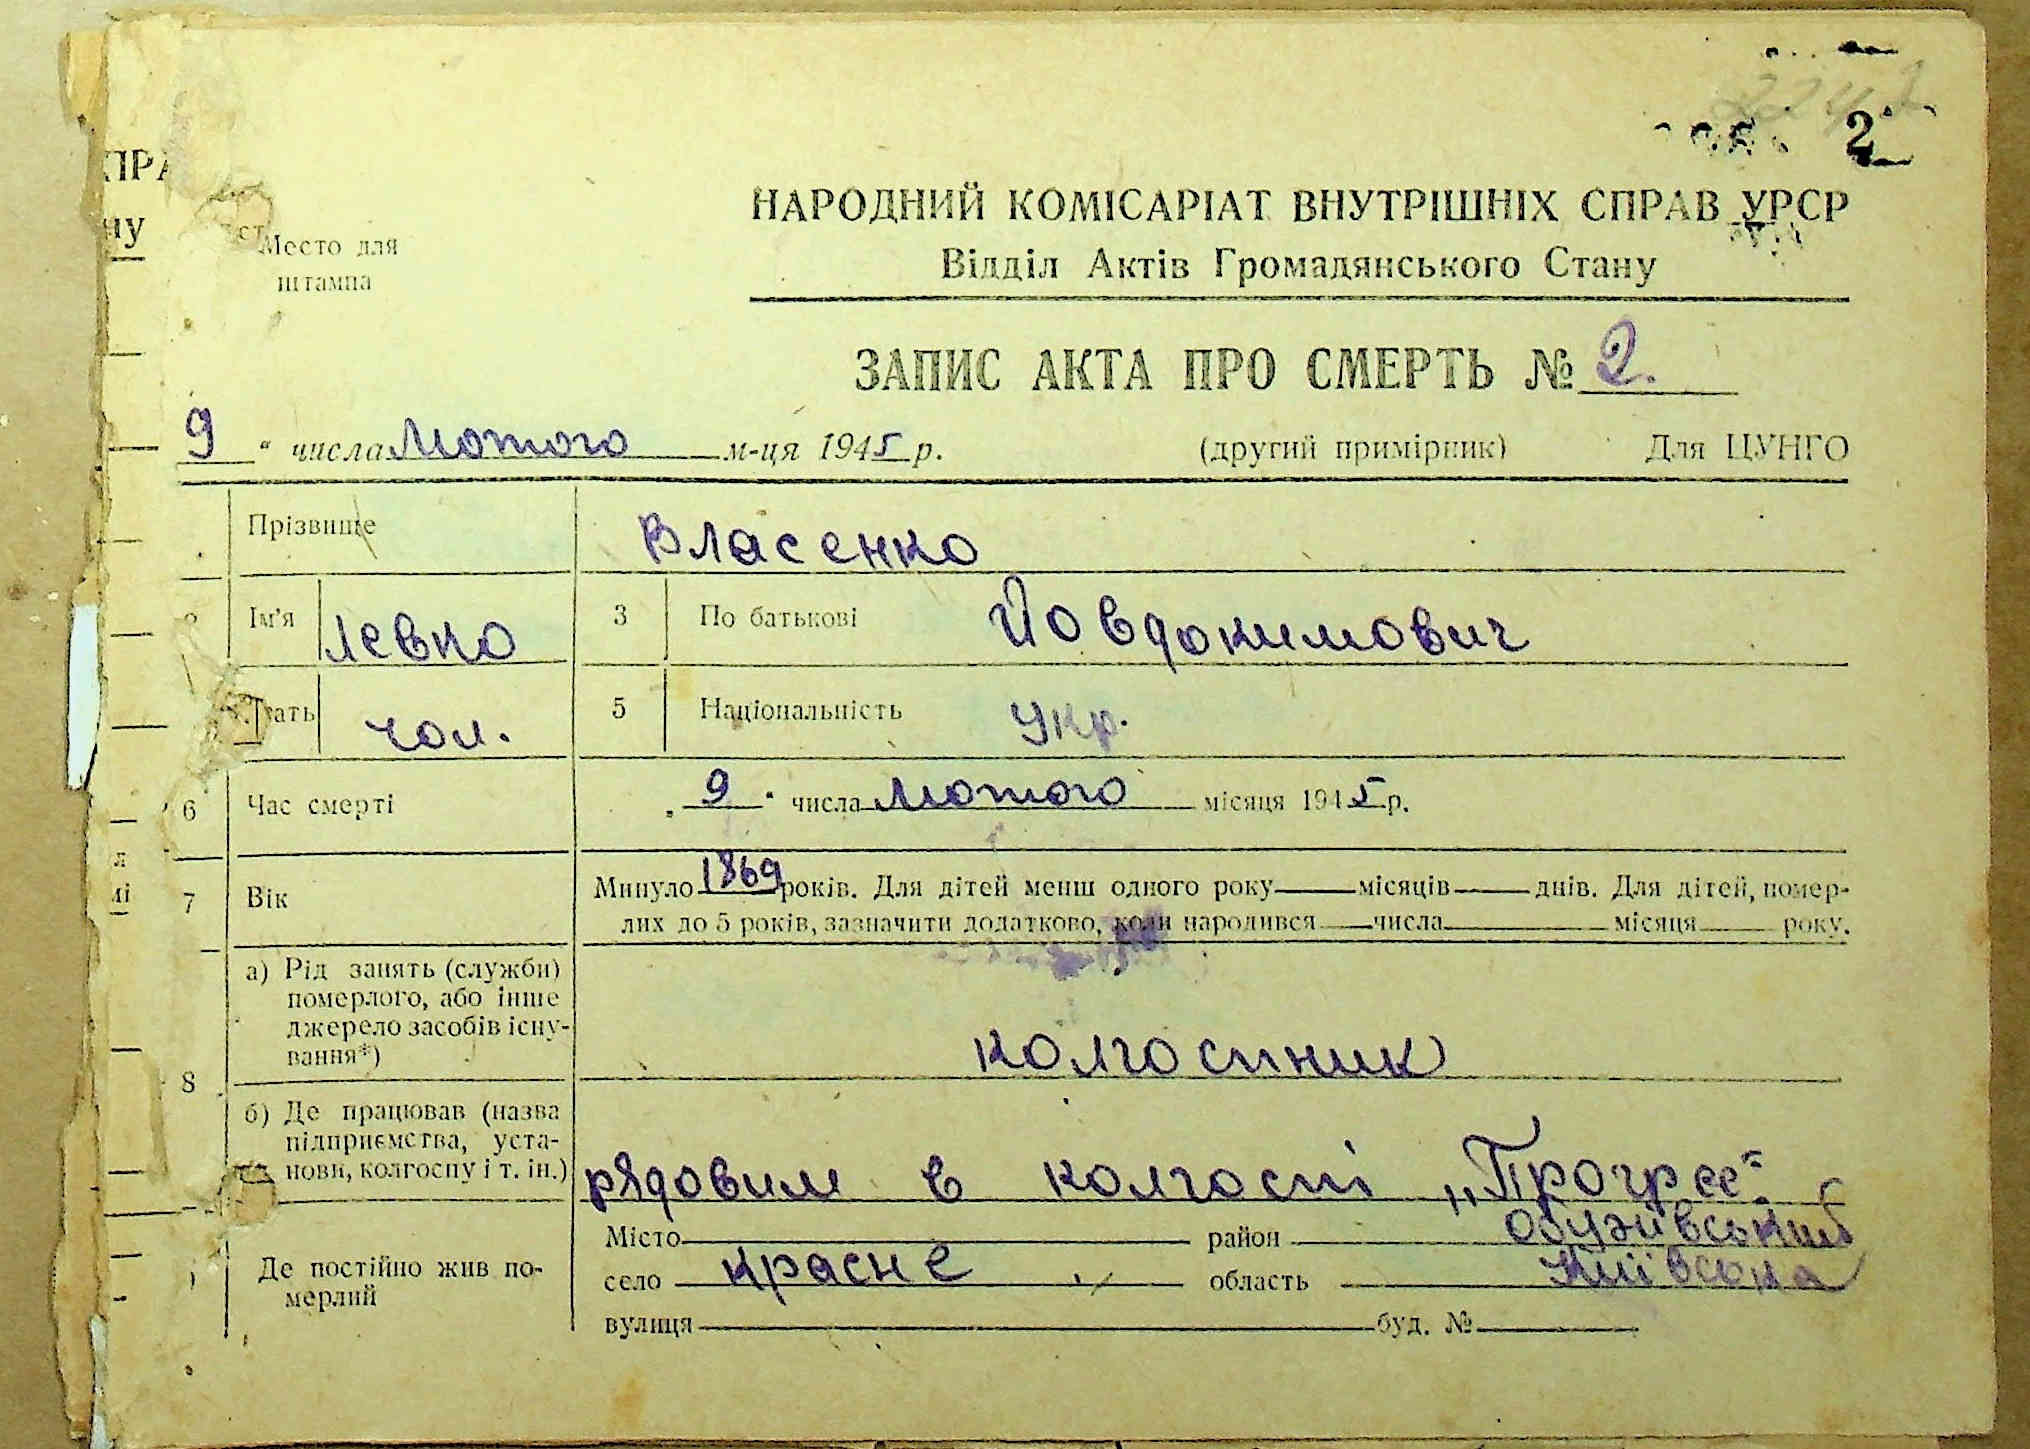 2
НАРОДНИЙ КОМІСАРІАТ ВНУТРІШНІХ СПРАВ УРСР
Відділ Актів Громадянського Стану
Место для
штампа
ЗАПИС АКТА ПРО СМЕРТЬ № 2.
9 " числа Лютого м-ця 1945 р. (другий примірник) Для ЦУНГО
Прізвище Власенко
Ім'я Левко 3 По батькові Йовдокимович
чол. 5 Національність Укр.
6 Час смерті „ 9 " числа Лютого місяця 1945 р.
7 Вік Минуло 1869 років. Для дітей менш одного року місяців днів. Для дітей, помер-
лих до 5 років, зазначити додатково, коли народився числа місяця року.
8 а) Рід занять (служби)
померлого, або інше
джерело засобів існу-
вання*) колгоспник
б) Де працював (назва
підприємства, уста-
нови, колгоспу і т. ін.) рядовим в колгоспі „Прогрес"
Де постійно жив по-
мерлий
Місто район Обухівський
село Красне область Київська
вулиця буд. №